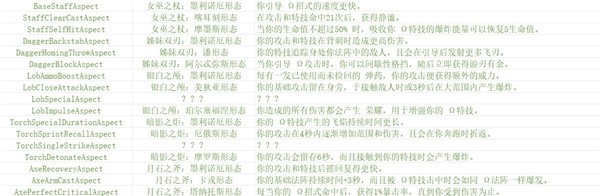 BaseStaffAspect 女巫之杖：墨利诺厄形态 你引导 Ω招式的速度更快。
StaffClearCastAspect 女巫之杖：喀耳刻形态 在攻击和特技命中21次后，获得静谧。
StaffSelfHitAspect 女巫之杖：摩墨斯形态 当你的生命值不超过50% 时，吸收你 Ω特技的爆炸能量可以恢复5生命值。
DaggerBackstabAspect 姊妹双刃：墨利诺厄形态 你的攻击和特技在背刺时造成更高伤害。
DaggerHomingThrowAspect 姊妹双刃：潘形态 你的特技追踪身处你法阵中的敌人，且会在引导后发射更多飞刃。
DaggerBlockAspect 姊妹双刃：阿尔忒弥斯形态 当你引导 Ω攻击时，你可以间歇性格挡，随后立即获得游刃有余。
LobAmmoBoostAspect 银白之颅：墨利诺厄形态 每有一发已使用而未捡回的 弹药，你的攻击便获得额外的威力。
LobCloseAttackAspect 银白之颅：美狄亚形态 你的基础攻击留在身旁，于接触敌人时或3秒后在大范围内产生爆炸。
LobSpecialAspect ？？？ ？？？
LobImpulseAspect 银白之颅：珀尔塞福涅形态 你造成的所有伤害都会产生 荣耀，用于增强你的 Ω特技。
TorchSpecialDurationAspect 暗影之炬：墨利诺厄形态 你的 Ω特技产生的飞焰持续时间更长。
TorchSprintRecallAspect 暗影之炬：厄俄斯形态 你的攻击在4秒内逐渐增加范围和伤害，且会在你奔跑时折返。
TorchSingleStrikeAspect ？？？ ？？？
TorchDetonateAspect 暗影之炬：摩罗斯形态 你的攻击会留存6秒，而且接触到你的特技时会产生爆炸。
AxeRecoveryAspect 月石之斧：墨利诺厄形态 你的攻击和特技后摇回复得更快。
AxeArmCastAspect 月石之斧：卡戎形态 你的基础法阵持续时间+3秒，而且被 Ω特技击中时会如同 Ω法阵一样爆发。
AxePerfectCriticalAspect 月石之斧：塔纳托斯形态 每当你的 Ω招式命中后，获得1%暴击率，直到你受到伤害为止。